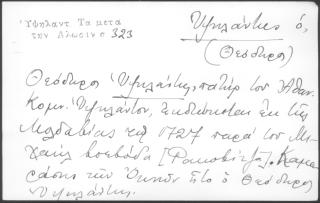 Ὑψηλαντ Τα μετα
την Αλωσιν σ 323
Ὑψηλάντης ὁ,
(Θεόδωρος)
Θεόδωρος Ὑψηλάντης, πατὴρ τοῦ Ἀθαν.
Κομν. Ὑψηλάντου, ἐκδιώκεται ἐκ τῆς
Μολδαβίας τῷ 1727 παρὰ τοῦ Μι-
χαὴλ βοεβόδα [Ρακοβίτζα].
τῶν ἦτο ὁ Θεόδωρος
Ὑψηλάντης.